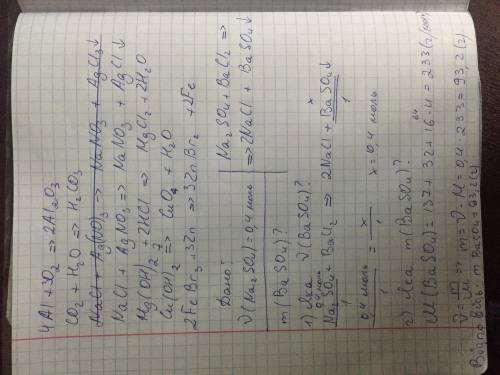 4Al + 3O₂ => 2Al₂O₃
CO₂ + H₂O => H₂CO₃
NaCl + Ag(NO)₃ => NaNO₃ + AgCl₃↓
NaCl + AgNO₃ => NaNO₃ + AgCl↓
Mg(OH)₂ + 2HCl => MgCl₂ + 2H₂O
Cu(OH)₂ => CuO + H₂O
2FeBr₃ + 3Zn => 3ZnBr₂ + 2Fe
Дано:
ν(Na₂SO₄) = 0,4 моль
m(BaSO₄)?
Na₂SO₄ + BaCl₂ =>
=> 2NaCl + BaSO₄↓
1) ν(BaSO₄)?
0,4 моль x
Na₂SO₄ + BaCl₂ => 2NaCl + BaSO₄↓
1 1
0,4 моль / 1 = x / 1 x = 0,4 моль
2) m(BaSO₄)?
64
M(BaSO₄) = 137 + 32 + 16·4 = 233 (г/моль)
ν = m/M => m = ν·M = 0,4·233 = 93,2 (г)
m BaSO₄ = 93,2 (г)